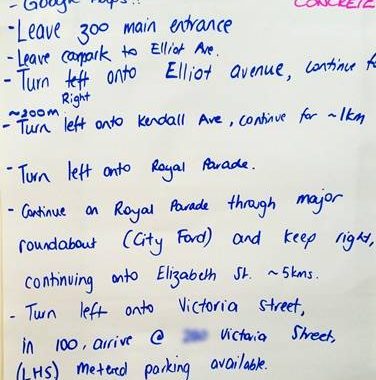 - Google Maps!!
CONCRETE
- Leave 300 main entrance
- Leave carpark to Elliot Ave.
- Turn left onto Elliot avenue, continue for
Right
~200m
- Turn left onto Kendall Ave, continue for ~1km
- Turn left onto Royal Parade.
- Continue on Royal Parade through major
roundabout (City Ford) and keep right,
continuing onto Elizabeth St. ~5kms.
- Turn left onto Victoria street,
in 100, arrive @ Victoria Street,
(LHS) metered parking available.